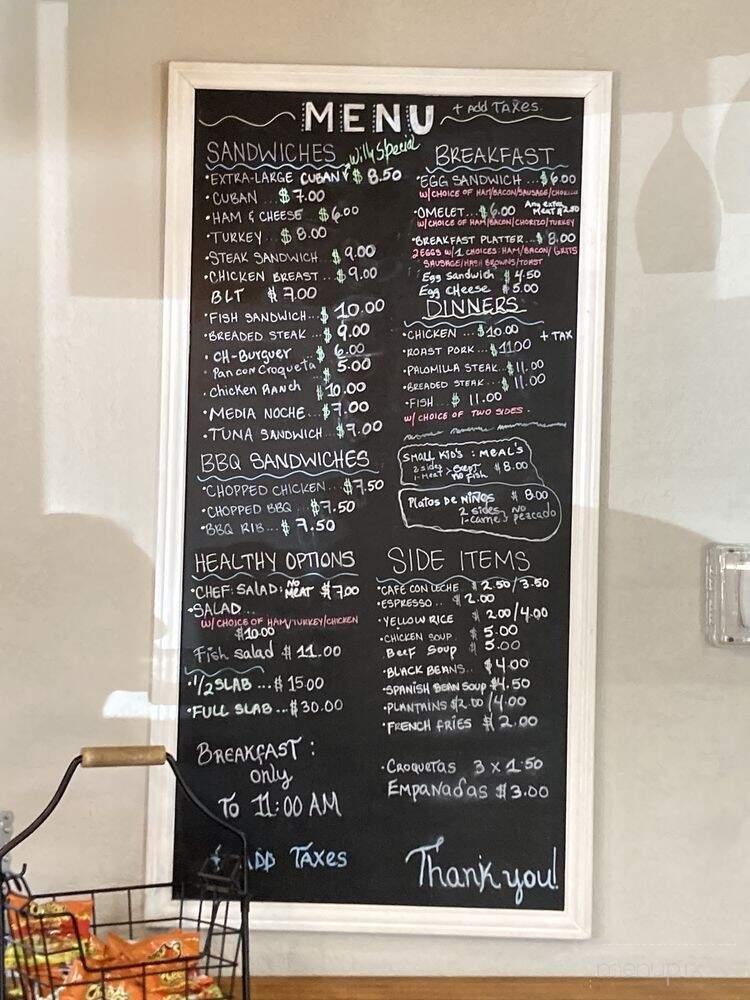 MENU + Add Taxes.
SANDWICHES Willy Special
•EXTRA-LARGE CUBAN $ 8.50
•CUBAN ... $ 7.00
•HAM & CHEESE $6.00
•TURKEY... $ 8.00
•STEAK SANDWICH... $ 9.00
•CHICKEN BREAST... $ 9.00
BLT $ 7.00
•FISH SANDWICH... $ 10.00
•BREADED STEAK... $ 9.00
•CH-Burguer $ 6.00
•Pan con Croqueta $ 5.00
•Chicken Ranch $ 10.00
•MEDIA NOCHE.. $7.00
•TUNA SANDWICH.. $7.00
BBQ SANDWICHES
•CHOPPED CHICKEN... $7.50
•CHOPPED BBQ ... $7.50
•BBQ RIB... $ 7.50
HEALTHY OPTIONS
•CHEF: SALAD: NO MEAT $7.00
•SALAD...
W/ CHOICE OF HAM/TURKEY/CHICKEN
$10.00
Fish salad $ 11.00
•1/2 SLAB ... $ 15.00
•FULL SLAB ... $ 30.00
BREAKFAST:
only
To 11:00 AM
ADD TAXES
BREAKFAST
•EGG SANDWICH... $6.00
W/CHOICE OF HAM/BACON/SAUSAGE/CHORIZO
•OMELET... $6.00 Any extra Meat $2.50
W/CHOICE OF HAM/BACON/CHORIZO/TURKEY
•BREAKFAST PLATTER... $ 8.00
2 EGGS W/1 CHOICES: HAM/BACON/ GRITS
SAUSAGE/HASH BROWNS/TOAST
Egg Sandwich $ 4.50
Egg Cheese $ 5.00
DINNERS
•CHICKEN ... $10.00
•ROAST PORK... $11.00 + TAX
•PALOMILLA STEAK.. $11.00
•BREADED STEAK.. $ 11.00
•FISH.... $ 11.00
W/ CHOICE OF TWO SIDES.
SMALL KID'S : MEAL'S
2 sides
1-Meat No Fish $ 8.00
Platos DE NIÑOS $ 8.00
2 sides NO
1-carne pezcado
SIDE ITEMS
•CAFE CON LECHE $ 2.50/3.50
•ESPRESSO.. $ 2.00
•YELLOW RICE $ 2.00/4.00
•CHICKEN SOUP. $ 5.00
Beef Soup $ 5.00
•BLACK BEANS.. $4.00
•SPANISH BEAN SOUP $4.50
•PLANTAINS $2.00/4.00
•FRENCH FRIES $ 2.00
•CROQUETAS 3 x 1.50
EMPANADAS $3.00
Thank you!